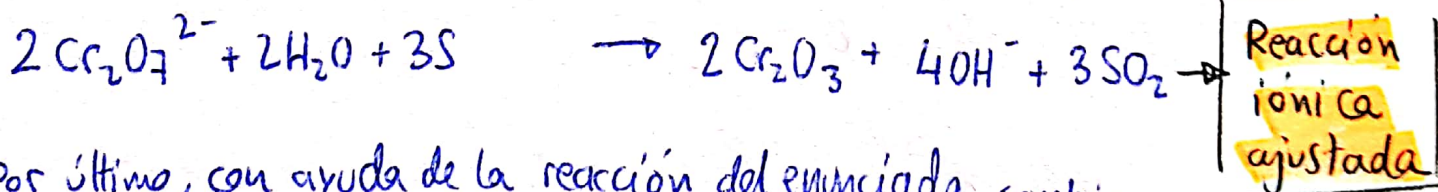 2 Cr₂O₇²⁻ + 2H₂O + 3S → 2 Cr₂O₃ + 4OH⁻ + 3 SO₂ →
Reacción
iónica
ajustada
Por último, con ayuda de la reacción del enunciado